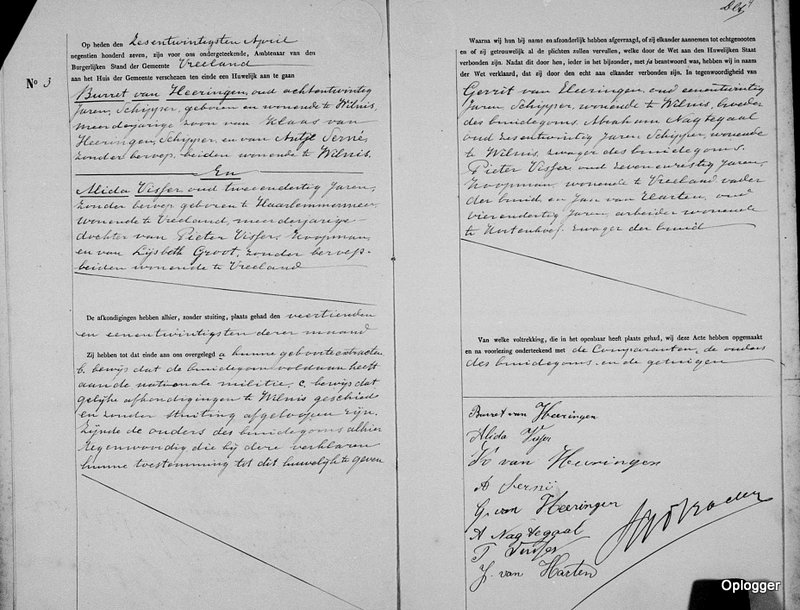 Op heden den Zesentwintigsten April
negentien honderd zeven, zijn voor ons ondergeteekende, Ambtenaar van den
Burgerlijken Stand der Gemeente Vreeland
aan het Huis der Gemeente verschenen ten einde een Huwelijk aan te gaan
No 3
Burret van Heeringen, oud achtentwintig
Jaren, Schipper, geboren en wonende te Wilnis,
meerderjarige zoon van Klaas van
Heeringen, Schipper, en van Antje Serné,
zonder beroep, beiden wonende te Wilnis.
En
Alida Visser, oud tweeendertig Jaren,
zonder beroep geboren te Haarlemmermeer,
wonende te Vreeland, meerderjarige
dochter van Pieter Visser, Koopman,
en van Lijsbeth Groot, zonder beroep,
beiden wonende te Vreeland
De afkondigingen hebben alhier, zonder stuiting, plaats gehad den veertienden
en eenentwintigsten dezer maand
Zij hebben tot dat einde aan ons overgelegd a hunne geboorteextracten
b. bewijs dat de bruidegom voldaan heeft
aan de nationale militie, c. bewijs dat
gelijke afkondigingen te Wilnis geschied
en zonder stuiting afgeloopen zijn.
Zijnde de ouders des bruidegoms alhier
tegenwoordig die bij deze verklaren
hunne toestemming tot dit huwelijk te geven
Waarna wij hun bij name en afzonderlijk hebben afgevraagd, of zij elkander aannemen tot echtgenooten
en of zij getrouwelijk al de plichten zullen vervullen, welke door de Wet aan den Huwelijken Staat
verbonden zijn. Nadat dit door hen, ieder in het bijzonder, met ja beantwoord was, hebben wij in naam
der Wet verklaard, dat zij door den echt aan elkander verbonden zijn. In tegenwoordigheid van
Gerrit van Heeringen, oud eenentwintig
Jaren Schipper, wonende te Wilnis, broeder
des bruidegoms Abraham Nagtegaal
oud zesentwintig Jaren Schipper, wonende
te Wilnis, zwager des bruidegoms.
Pieter Visser oud zevenenzestig Jaren,
Koopman, wonende te Vreeland vader
der bruid, en Jan van Harten, oud
vierendertig Jaren, arbeider wonende
te Kortenhoef, zwager der bruid
Van welke voltrekking, die in het openbaar heeft plaats gehad, wij deze Acte hebben opgemaakt
en na voorlezing onderteekend met de Comparanten, de ouders
des bruidegoms en de getuigen
Burret van Heeringen
Alida Visser
van Heeringen
A Serné
G. van Heeringen
A Nagtegaal
P Visser
J. van Harten
Oplogger